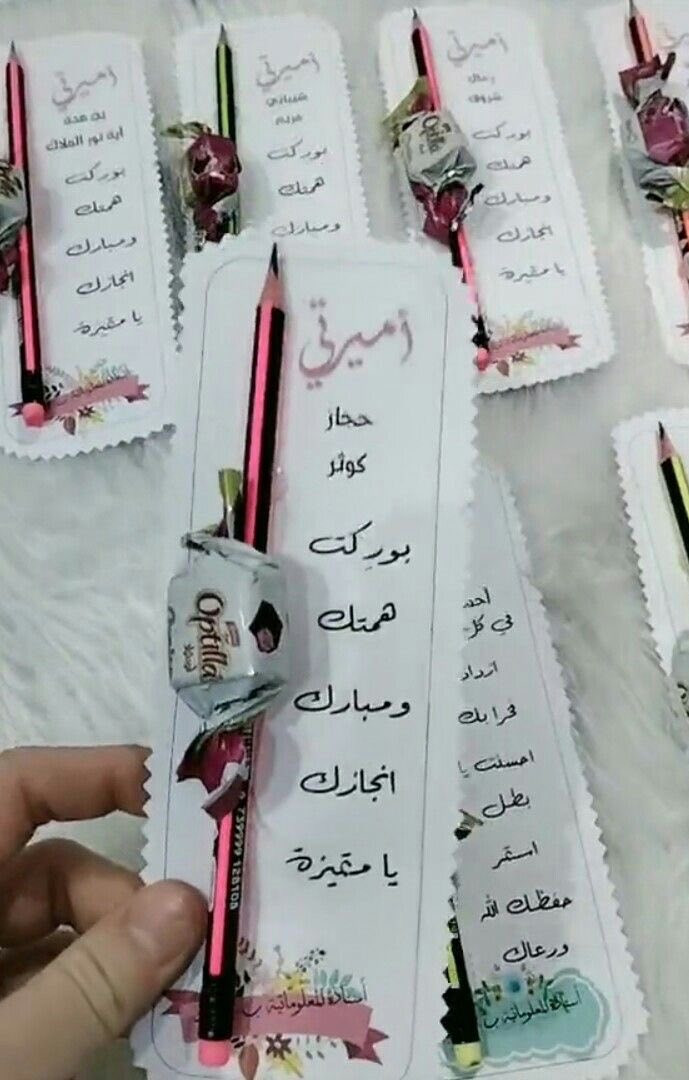 أميرتي
به محة
آية نور الملاك
بوركت
همتك
ومبارك
انجازك
يا متميزة
أميرتي
شيباني
مريم
بوركت
همتك
ومبارك
أميرتي
رحال
شروق
بوركت
همتك
ومبارك
انجازك
يا متميزة
أميرتي
حجار
كوثر
بوركت
همتك
ومبارك
انجازك
يا متميزة
أستاذة المعلوماتية ب
Optilla
739999 128108
في كل
أزداد
فخرا بك
احسنت يا
بطل
استمر
حفظك الله
ورعاك
أستاذة المعلوماتية ب